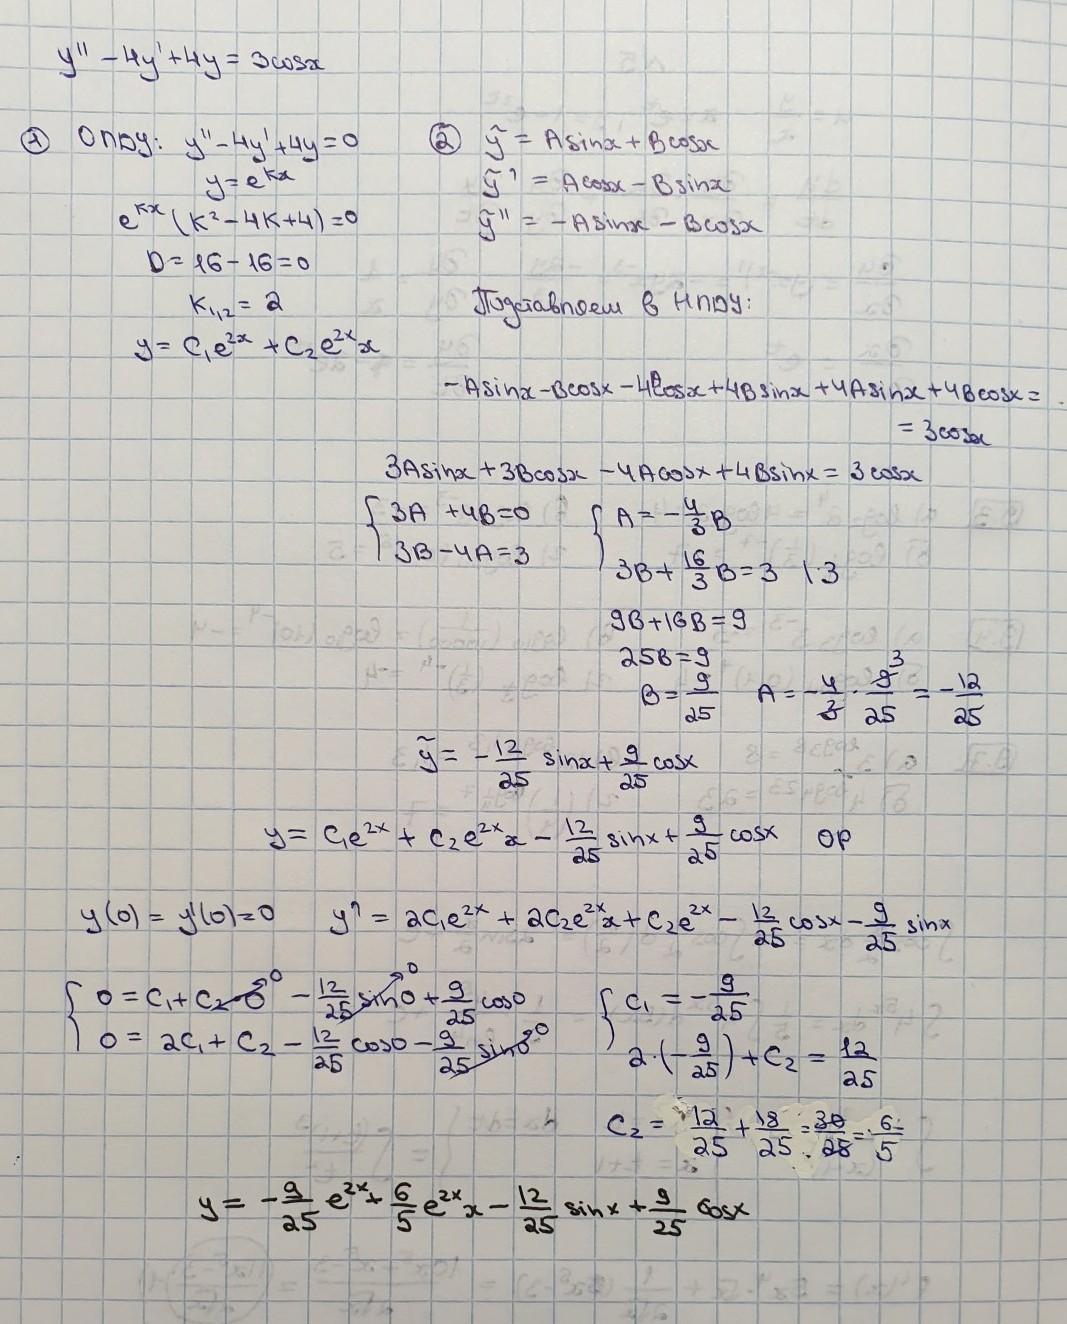 y'' - 4y' + 4y = 3cosx
① ОЛДУ: y'' - 4y' + 4y = 0
y = e^{kx}
e^{kx}(k² - 4k + 4) = 0
D = 16 - 16 = 0
k_{1,2} = 2
y = C₁e^{2x} + C₂e^{2x}x
② ỹ = Asinx + Bcosx
ỹ' = Acosx - Bsinx
ỹ'' = -Asinx - Bcosx
Подставляем в НЛДУ:
-Asinx - Bcosx - 4Acosx + 4Bsinx + 4Asinx + 4Bcosx =
= 3cosx
3Asinx + 3Bcosx - 4Acosx + 4Bsinx = 3cosx
{ 3A + 4B = 0
3B - 4A = 3
{ A = -4/3 B
3B + 16/3 B = 3 | · 3
9B + 16B = 9
25B = 9
B = 9/25 A = -4/3 · 9³/25 = -12/25
ỹ = -12/25 sinx + 9/25 cosx
y = C₁e^{2x} + C₂e^{2x}x - 12/25 sinx + 9/25 cosx ОР
y(0) = y'(0) = 0 y' = 2C₁e^{2x} + 2C₂e^{2x}x + C₂e^{2x} - 12/25 cosx - 9/25 sinx
{ 0 = C₁ + C₂·0⁰ - 12/25 sin0⁰ + 9/25 cos0
0 = 2C₁ + C₂ - 12/25 cos0 - 9/25 sin0⁰
{ C₁ = -9/25
2·(-9/25) + C₂ = 12/25
C₂ = 12/25 + 18/25 = 30/25 = 6/5
y = -9/25 e^{2x} + 6/5 e^{2x}x - 12/25 sinx + 9/25 cosx